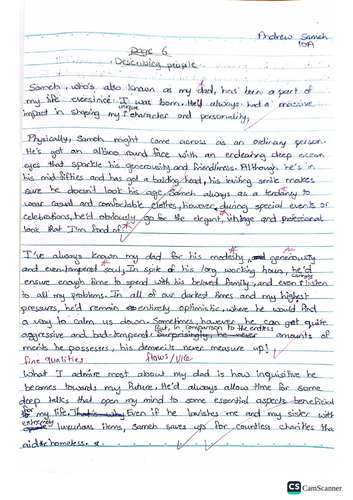 Andrew Sameh
10A
Page 6
Describing people
Sameh, who's also known as my dad, has been a part of
my life eversince I was born. He'd always had a massive
impact in shaping my unique character and personality.
Physically, Sameh might come across as an ordinary person.
He's got an albino round face with an endearing deep ocean
eyes that sparkle his generousity and friendliness. Although he's in
his mid-fifties and has got a balding head, his smile makes
sure he doesn't look his age. Sameh always as a tendency to
wear casual and comfortable clothes, however, during special events or
celebrations, he'd obviously go for the elegant, vintage and professional
look that I'm fond of.
I've always known my dad for his modesty, generousity
and even-tempered soul, In spite of his long working hours, he'd
ensure enough time to spend with his beloved family, and even listen
to all my problems. In all of our darkest times and my highest
pressures, he'd remain entirely optimistic, where he would find
a way to calm us down. Sometimes however he can get quite
aggressive and bad-tempered. But, in comparison to the endless amounts of
merits he possesses, his demerits never measure up!
fine qualities flaws/vice
What I admire most about my dad is how inquisitive he
becomes towards my future. He'd always allow time for some
deep talks that open my mind to some essential aspects beneficial
for my life. Even if he lavishes me and my sister with
extremely luxurious items, Sameh saves up for countless charities tha
aid homeless.
CS CamScanner